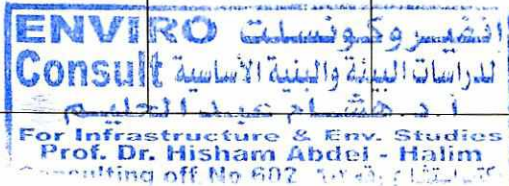 ENVIRO إنفيروكونسلت
Consult للدراسات البيئة والبنية الأساسية
أ.د. هشام عبد الحليم
For Infrastructure & Env. Studies
Prof. Dr. Hisham Abdel - Halim
Consulting off No 602